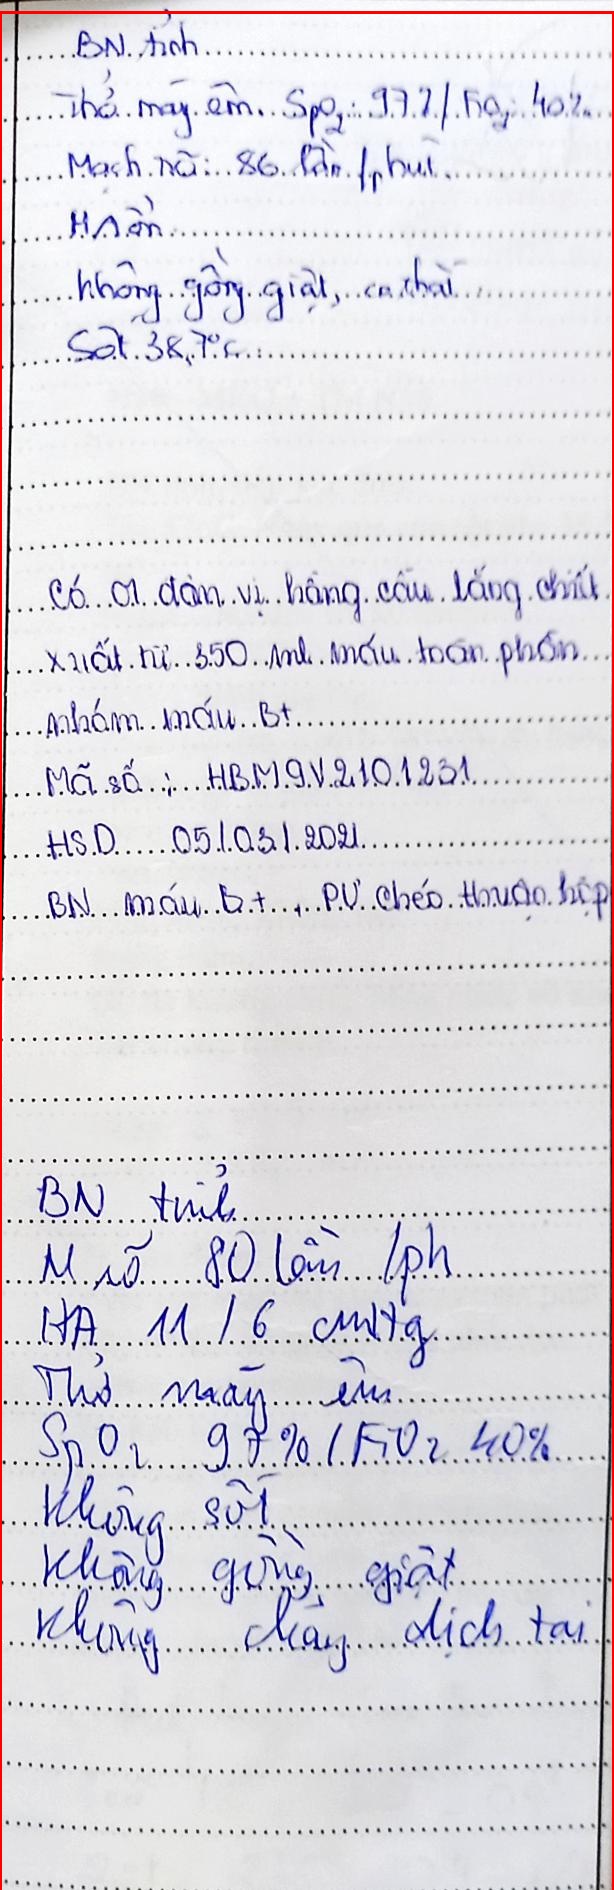 BN tỉnh
Thở máy êm. SpO2: 97% / FiO2: 40%
Mạch rõ: 86 lần /phút
HA ổn
không gồng giật,
Sốt 38,7°c
Có 01 đơn vị hồng cầu lắng chiết
xuất từ 350 ml máu toàn phần
nhóm máu B+
Mã số : HBM9V2101231
HSD 05/03/2021
BN máu B+, PƯ chéo thuận hợp
BN tỉnh
M rõ 80 lần /ph
HA 11 / 6 cmHg
Thở máy êm
SpO2 97% / FiO2 40%
Không sốt
Không gồng giật
Không chảy dịch tai